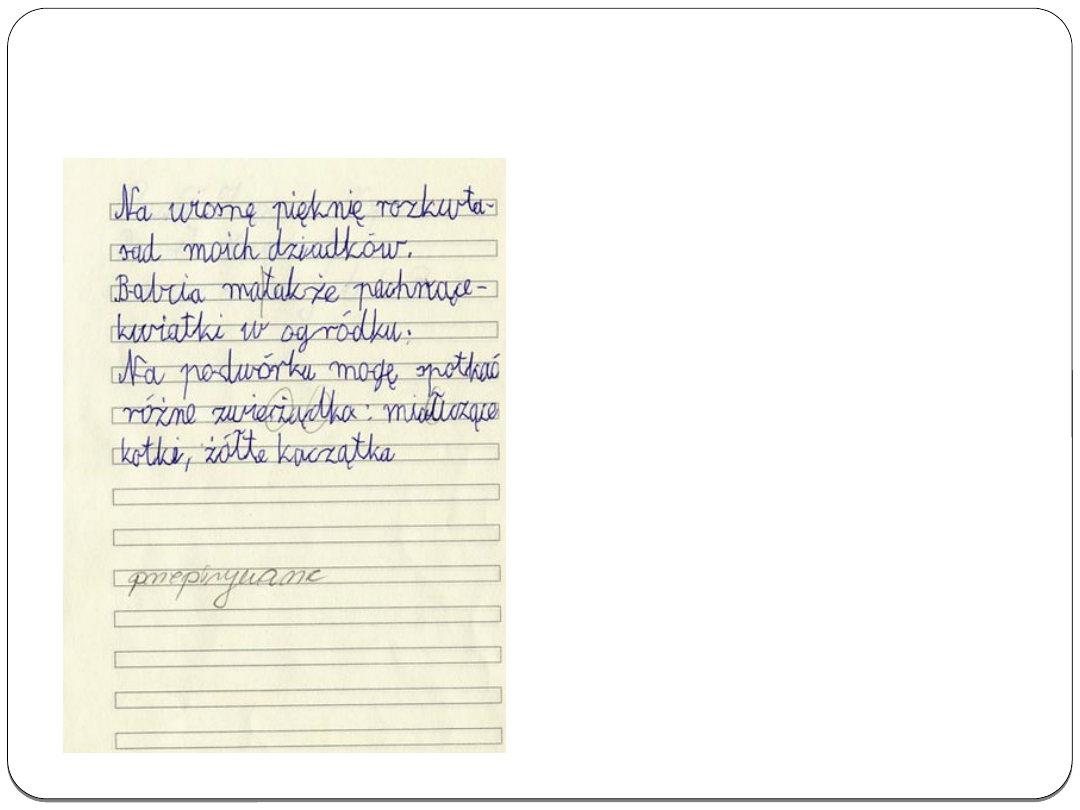 Na wiosnę pięknię rozkwita-
sad moich dziadków.
Babcia matakże pachnące-
kwiatki w ogródku:
Na podwórku mogę spotkać
różne zwierżądka: miałczące
kotki, żółte kaczątka
przepisywane